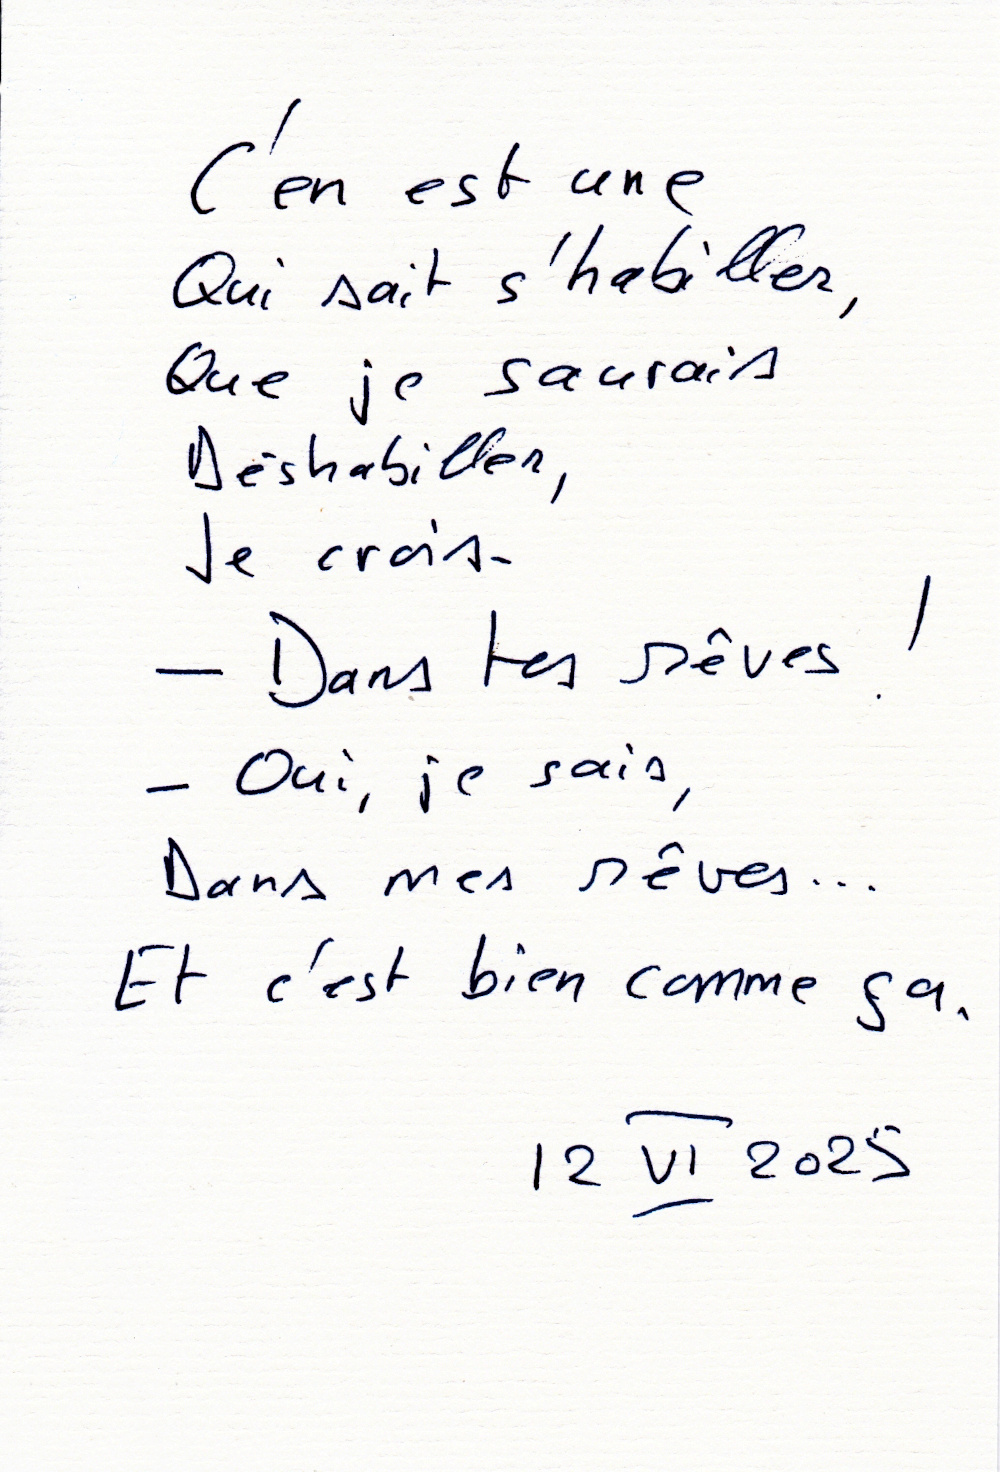 C'en est une
Qui sait s'habiller,
Que je saurais
Déshabiller,
Je crois.
— Dans tes rêves !
– Oui, je sais,
Dans mes rêves...
Et c'est bien comme ça.
12 VI 2025